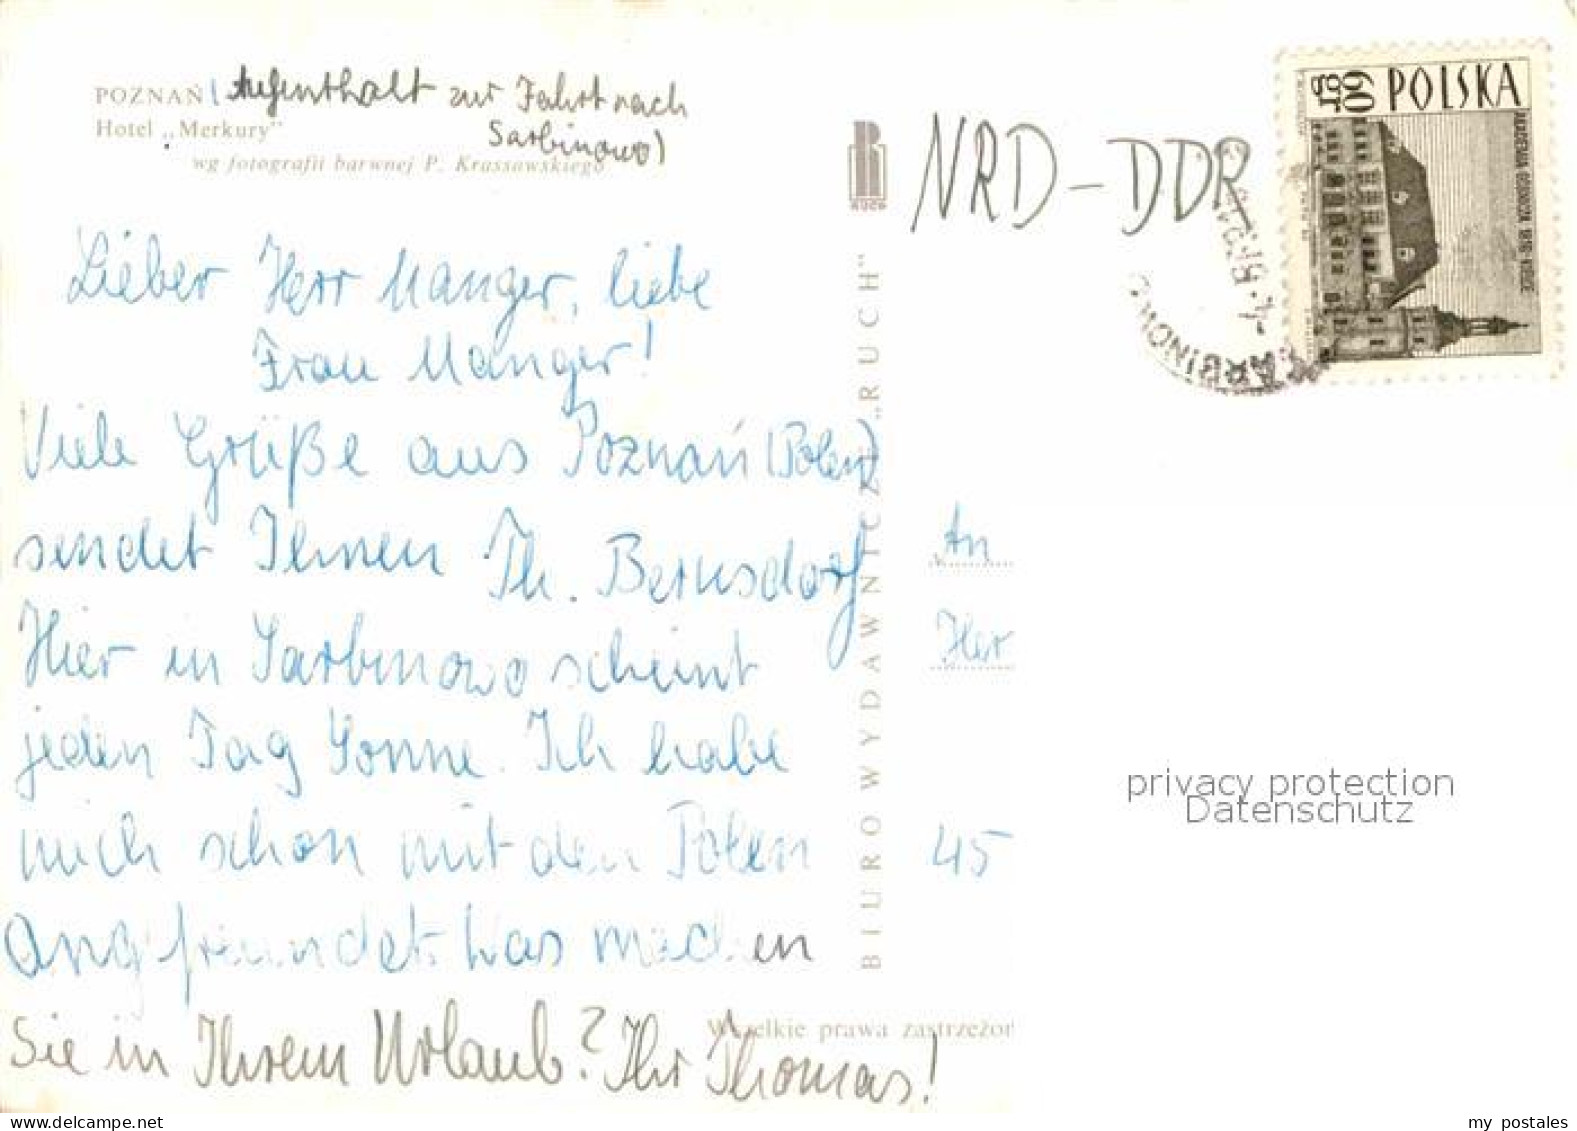 POZNAŃ (Aufenthalt zur Fahrt nach
Hotel „Merkury" Sarbinowo)
wg fotografii barwnej P. Krassowskiego
NRD - DDR
60 gr POLSKA
SARBINOWO
Lieber Herr Manger, liebe
Frau Manger!
Viele Grüße aus Poznań (Polen)
sendet Ihnen Th. Bernsdorf
Hier in Sarbinowo scheint
jeden Tag Sonne. Ich habe
mich schon mit den Polen
angefreundet. Was machen
Sie in Ihrem Urlaub? Ihr Thomas!
BIURO WYDAWNICZE „RUCH"
Wszelkie prawa zastrzeżon
An
Her
45
privacy protection
Datenschutz
my postales